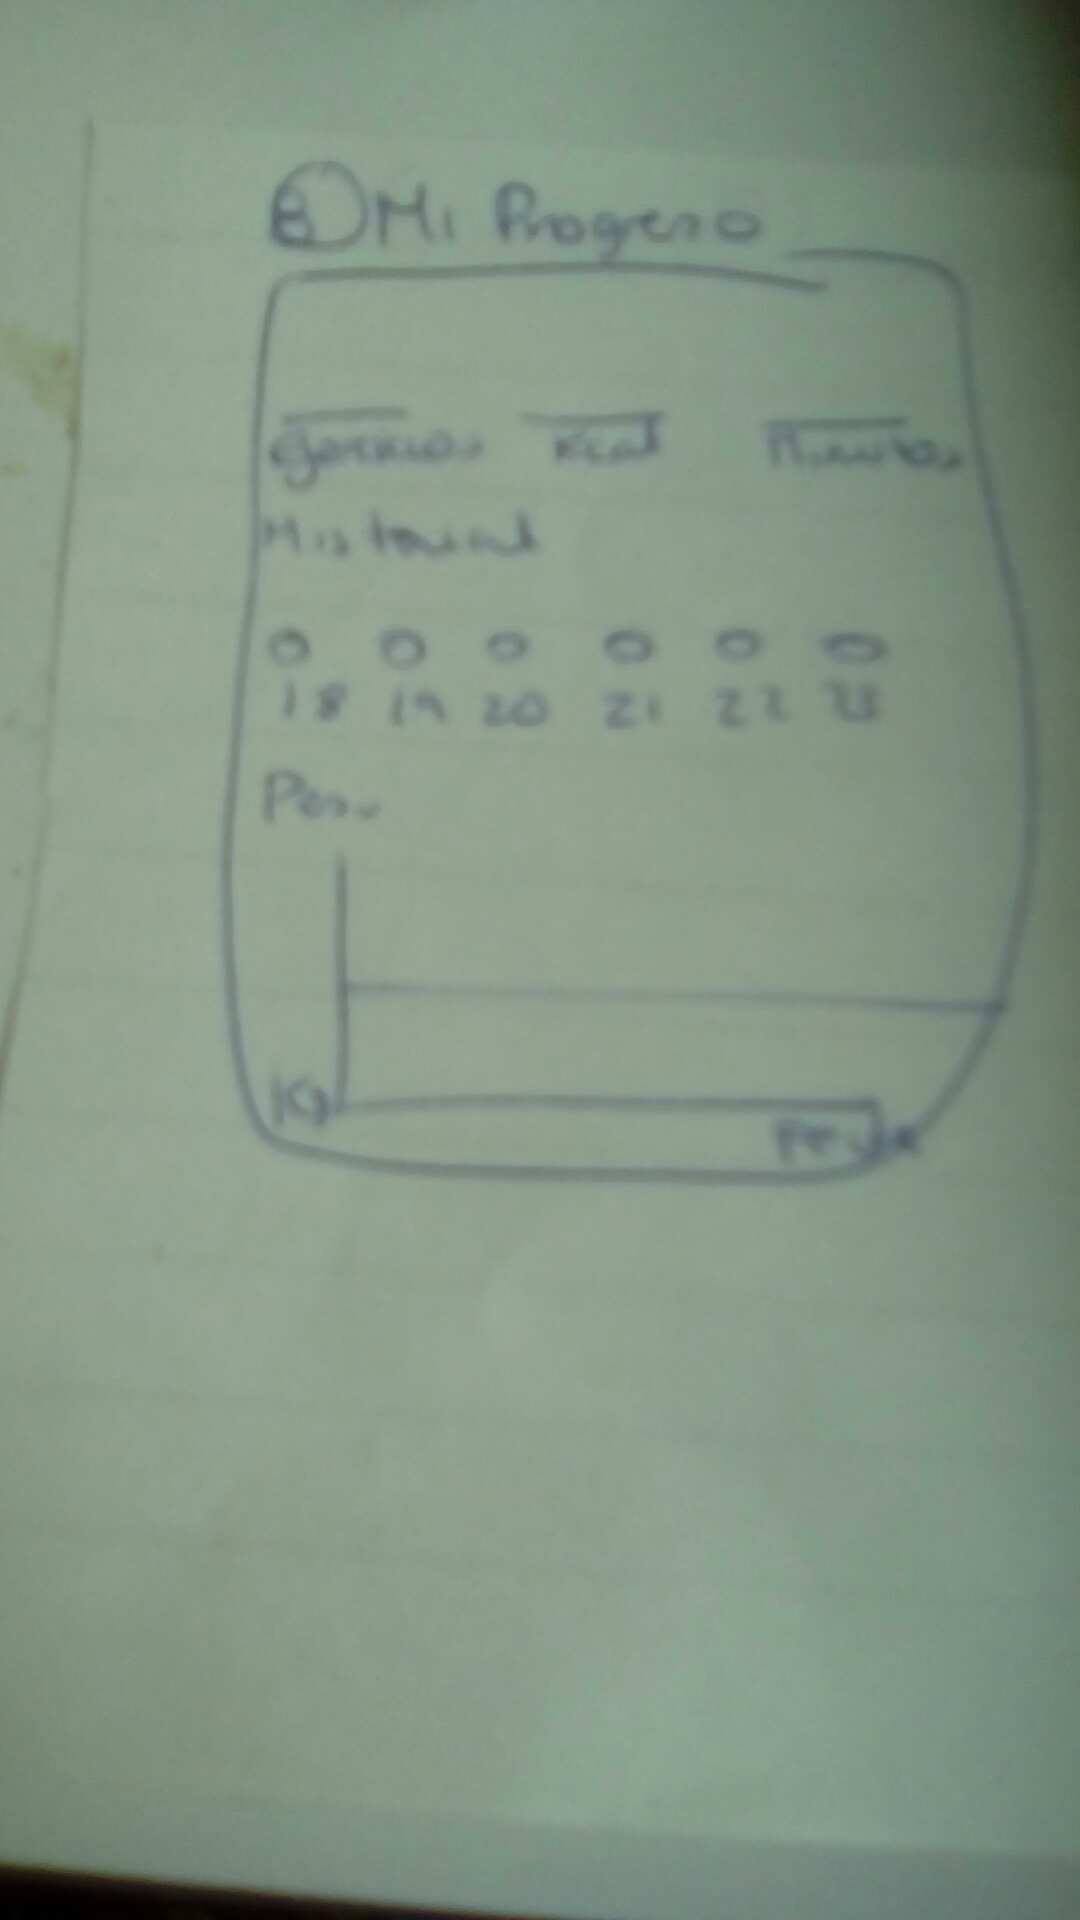 B) Mi Progreso
Ejercicios Kcal Minutos
Historial
18 19 20 21 22 23
Peso
Kg